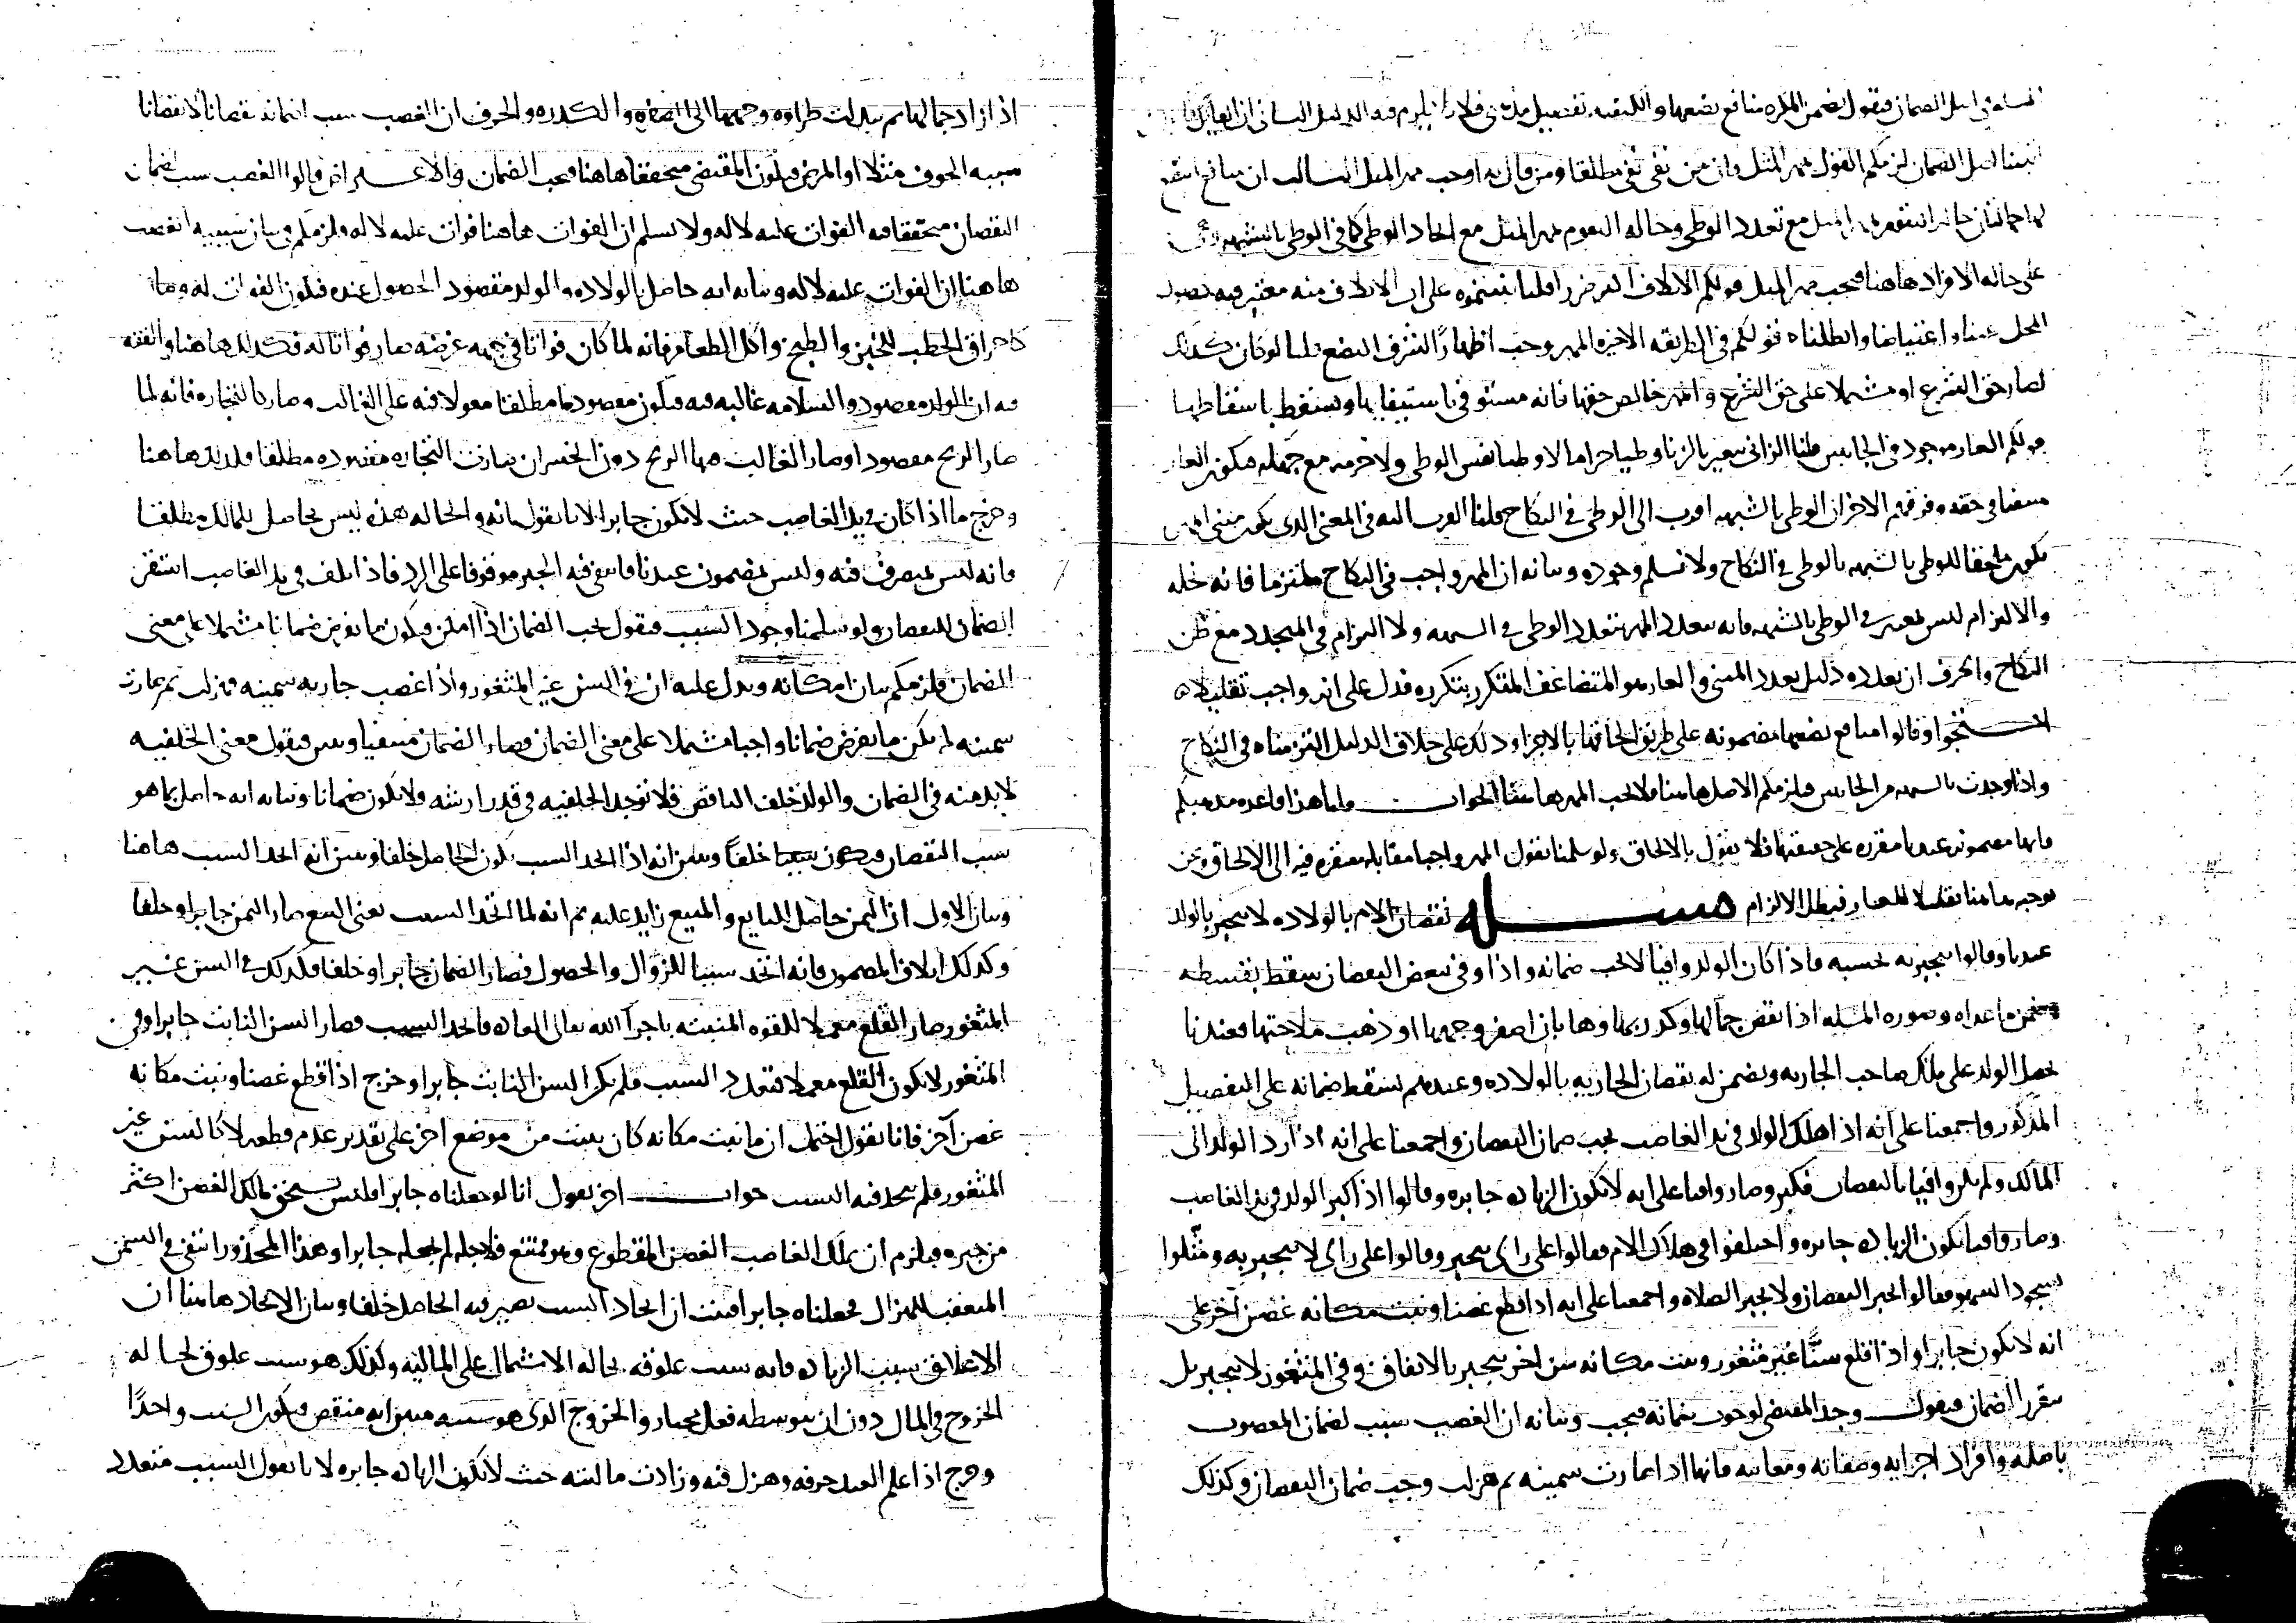 اصل الضمان فنقول نضمن المكره منافع بضعها والكيفيه تفصيل
اصل الضمان لزمكم القول بمهر المثل وان من نفى نفى مطلقا ومن قال به اوجب مهر المثل
المثل مع تعدد الوطى وحاله التقوم بمهر المثل مع اتحاد الوطى كما فى الوطى بالشبهه
على حاله الافراد هاهنا فيجب مهر المثل قولكم الاتلاف
المحل عينا واعتياضا وابطلناه قولكم فى الطريقه الاخيره المهر وجب اظهارًا لشرف البضع قلنا لو كان كذلك
لصار حق الشرع او مشتملا على حق الشرع والمهر خالص حقها فانه مستوفى باستيفايها ويسقط باسقاطها
قولكم العار موجود فى الجانبين قلنا الزانى يعير بالزنا وطيا حراما لا وطيا نفس الوطى ولا حرمه مع جهله فيكون العار
منتفيا فى حقه وفرقهم الاخر ان الوطى بالشبهه اقرب الى الوطى فى النكاح قلنا القرب اليه فى المعنى الذى
يكون ملحقا للوطى بالشبهه بالوطى فى النكاح ولا نسلم وجوده وبيانه ان المهر واجب فى النكاح ملتزما فانه خله
والالتزام ليس بمعتبر فى الوطى بالشبهه فانه يتعدد المهر بتعدد الوطى فى الشبهه ولا التزام فى المتجدد مع ظن
النكاح والحرف ان تعدده دليل تعدد المبنى والعار هو المتضاعف المتكرر بتكرره فدل على انه واجب تقليلا له
احتجوا وقالوا منافع بضعها مضمونه على طريق الحاقها بالاجزا وذلك على خلاف الدليل التزمناه فى النكاح
واذا وجدت بالشبهه من الجانبين فيلزمكم الاصل هاهنا فلا يجب المهر هاهنا الجواب قلنا هذا قاعده مذهبكم
فانها مضمونه عندنا مقرره على حقيقتها فلا نقول بالالحاق ولو سلمنا نقول المهر واجبا مقابله مفتقره فيه الى الالحاق ونحن
نوجبه هاهنا تقليلا للعار فبطل الالزام مسله نقصان الام بالولاده لا ينجبر بالولد
عندنا وقالوا ينجبر به بحسبه فاذا كان الولد وافيا لا يجب ضمانه واذا وفى ببعض النقصان سقط بقسطه
ويضمن ما عداه وصوره المسله اذا نقص جمالها وكدر بهاوها بان اصفر وجهها او ذهب ملاحتها فعندنا
يحصل الولد على ملك صاحب الجاريه ويضمن له نقصان الجاريه بالولاده وعندهم يسقط ضمانه على التفصيل
المذكور واجمعنا على انه اذا هلك الولد فى يد الغاصب يجب ضمان النقصان واجمعنا على انه اذا رد الولد الى
المالك ولم يكن وافيا بالنقصان فكبر وصار وافيا على انه لا تكون الزياده جابره وقالوا اذا كبر الولد فى يد الغاصب
وصار وافيا تكون الزياده جابره واختلفوا فى هلاك الام فقالوا على راى ينجبر وقالوا على راى لا ينجبر به ومثلوا
بسجود السهو فقالوا يجبر النقصان ولا يجبر الصلاه واجمعنا على انه اذا قطع غصنا ونبت مكانه غصن آخر على
انه لا يكون جابرا واذا قلع سنًّا غير مثغور ونبت مكانه سن اخر ينجبر بالاتفاق وفى المثغور لا ينجبر بل
يتقرر الضمان فنقول وجد المقتضى لوجوب ضمانه فيجب وبيانه ان الغصب سبب لضمان المغصوب
باصله وافراد اجزايه وصفاته ومعانيه فانها اذا صارت سمينه ثم هزلت وجب ضمان النقصان وكذلك
اذا ازاد جمالها ثم تبدلت طراوه وجهها الى الصفره والكدره والحرف ان الغصب سبب لضمانه نقصانا لا نقصانا
سببه الخوف مثلا او المرض فيكون المقتضى متحققا هاهنا فيجب الضمان فالاعتراض قالوا الغصب سبب ضمان
النقصان متحققا فيه الفوات عليه لا له ولا نسلم ان الفوات هاهنا فوات عليه لا له ويلزمكم فى بيان سببيه الغصب
هاهنا ان الفوات عليه لا له وبيانه انه حاصل بالولاده والولد مقصود الحصول عنده فيكون الفوات له وصار
كاحراق الحطب للخبز والطبخ واكل الطعام فانه لما كان فواتا فى جهه غرضه صار فواتا له فكذلك هاهنا والفقه
فيه ان الولد مقصود والسلامه غالبه فيه فيكون مقصودا مطلقا معولا فيه على الغالب وصار كالتجاره فانه لما
صار الربح مقصودا وصار الغالب فيها الربح دون الخسران صارت التجاره مقصوده مطلقا فكذلك هاهنا
وخرج ما اذا كان فى يد الغاصب حيث لا يكون جابرا لانا نقول بانه والحاله هذه ليس بحاصل للمالك مطلقا
فانه ليس بمتصرف فيه وليس بمضمون عندنا فانتفى فيه الجبر موقوفا على الرد فاذا تلف فى يد الغاصب استقر
الضمان للنقصان ولو سلمنا وجود السبب فنقول يجب الضمان اذا امكن فيكون ما يفرض ضمانا مشتملا على معنى
الضمان فلزمكم بيان امكانه ويدل عليه ان فى السن غير المثغور واذا غصب جاريه سمينه فهزلت ثم صارت
سمينه لم يكن ما يفرض ضمانا واجبا مشتملا على معنى الضمان فصار الضمان منتفيا ونحن نقول معنى الخلفيه
لا بد منه فى الضمان والولد خلف الناقص فلا توجد الخلفيه فى قدر ارشه فلا يكون ضمانا وبيانه انه حاصل بما هو
سبب النقصان فيكون سببا خلفًا وبيان انه اذا اتحد السبب يكون الحاصل خلفا وبيان انه اتحد السبب هاهنا
وبيان الاول ان الثمن حاصل للبايع والمبيع زايد عليه ثم انه لما اتحد السبب يعنى البيع صار الثمن جابرا وخلفا
وكذلك اتلاف المضمون فانه اتحد سببا للزوال والحصول فصار الضمان جابرا وخلفا فكذلك فى السن غير
المثغور صار القلع معملا للقوه المنبته باجرآ الله تعالى العاده فاتحد السبب فصار السن النابت جابرا وفى
المثغور لا يكون القلع معملا فتعدد السبب فلم يكن السن النابت جابرا وخرج اذا قطع غصنا ونبت مكانه
غصن آخر فانا نقول احتمل ان ما نبت مكانه كان ينبت من موضع اخر على تقدير عدم قطعه لا كالسن غير
المثغور فلم يتحد فيه السبب جواب اخر نقول انا لو جعلناه جابرا فليس يستحق مالك الغصن اكثر
من جبره فيلزم ان يملك الغاصب الغصن المقطوع وهو ممتنع فلاجله لم نجعله جابرا وهذا المحذور انتفى فى السمن
المتعقب للهزال فجعلناه جابرا فثبت ان اتحاد السبب يصير فيه الحاصل خلفا وبيان الاتحاد هاهنا ان
الاعلاق سبب الزياده فانه سبب علوقه بحاله الاشتمال على الماليه وكذلك هو سبب علوق لحاله
الخروج فى المال دون ان يتوسطه فعل مختار والخروج الذى هو سببه منقص فيكون السبب واحدًا
وخرج اذا علم العبد حرفه وهزل فيه وزادت ماليته حيث لا تكون الزياده جابره لانا نقول السبب متعدد